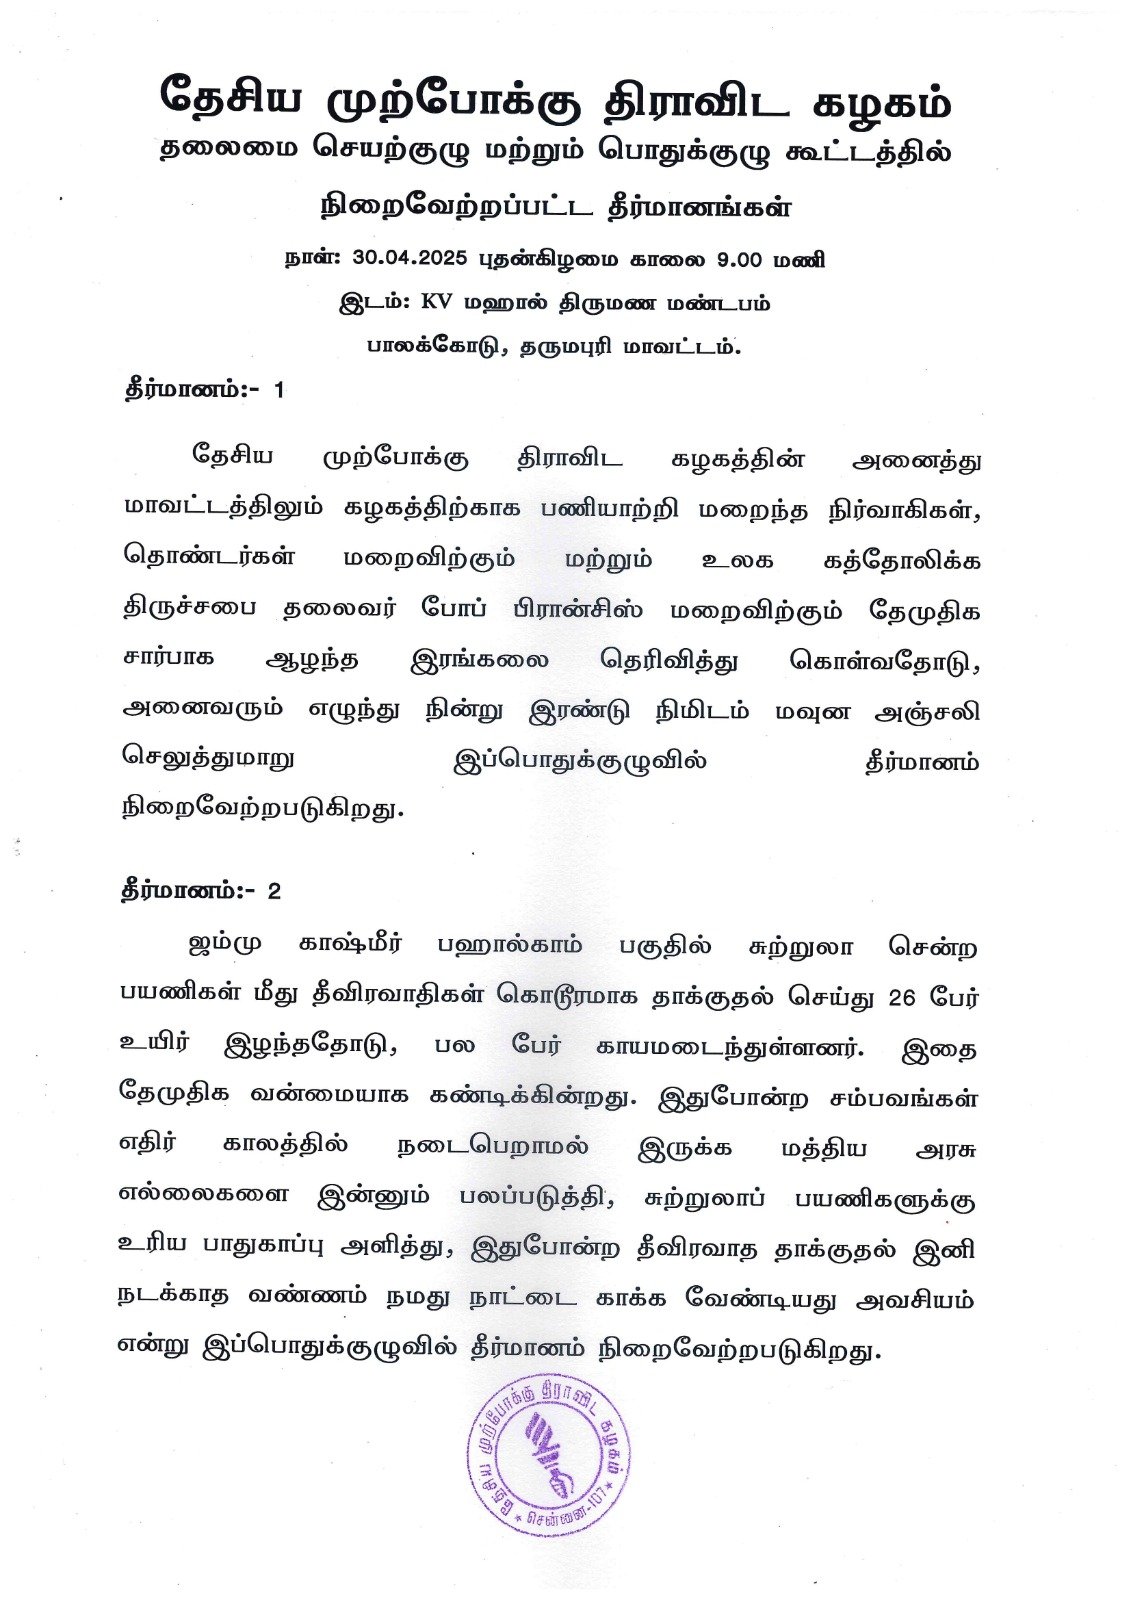 தேசிய முற்போக்கு திராவிட கழகம்
தலைமை செயற்குழு மற்றும் பொதுக்குழு கூட்டத்தில்
நிறைவேற்றப்பட்ட தீர்மானங்கள்
நாள்: 30.04.2025 புதன்கிழமை காலை 9.00 மணி
இடம்: KV மஹால் திருமண மண்டபம்
பாலக்கோடு, தருமபுரி மாவட்டம்.
தீர்மானம்:- 1
தேசிய முற்போக்கு திராவிட கழகத்தின் அனைத்து
மாவட்டத்திலும் கழகத்திற்காக பணியாற்றி மறைந்த நிர்வாகிகள்,
தொண்டர்கள் மறைவிற்கும் மற்றும் உலக கத்தோலிக்க
திருச்சபை தலைவர் போப் பிரான்சிஸ் மறைவிற்கும் தேமுதிக
சார்பாக ஆழந்த இரங்கலை தெரிவித்து கொள்வதோடு,
அனைவரும் எழுந்து நின்று இரண்டு நிமிடம் மவுன அஞ்சலி
செலுத்துமாறு இப்பொதுக்குழுவில் தீர்மானம்
நிறைவேற்றபடுகிறது.
தீர்மானம்:- 2
ஜம்மு காஷ்மீர் பஹால்காம் பகுதில் சுற்றுலா சென்ற
பயணிகள் மீது தீவிரவாதிகள் கொடூரமாக தாக்குதல் செய்து 26 பேர்
உயிர் இழந்ததோடு, பல பேர் காயமடைந்துள்ளனர். இதை
தேமுதிக வன்மையாக கண்டிக்கின்றது. இதுபோன்ற சம்பவங்கள்
எதிர் காலத்தில் நடைபெறாமல் இருக்க மத்திய அரசு
எல்லைகளை இன்னும் பலப்படுத்தி, சுற்றுலாப் பயணிகளுக்கு
உரிய பாதுகாப்பு அளித்து, இதுபோன்ற தீவிரவாத தாக்குதல் இனி
நடக்காத வண்ணம் நமது நாட்டை காக்க வேண்டியது அவசியம்
என்று இப்பொதுக்குழுவில் தீர்மானம் நிறைவேற்றபடுகிறது.
தேசிய முற்போக்கு திராவிட கழகம்
* சென்னை-107 *